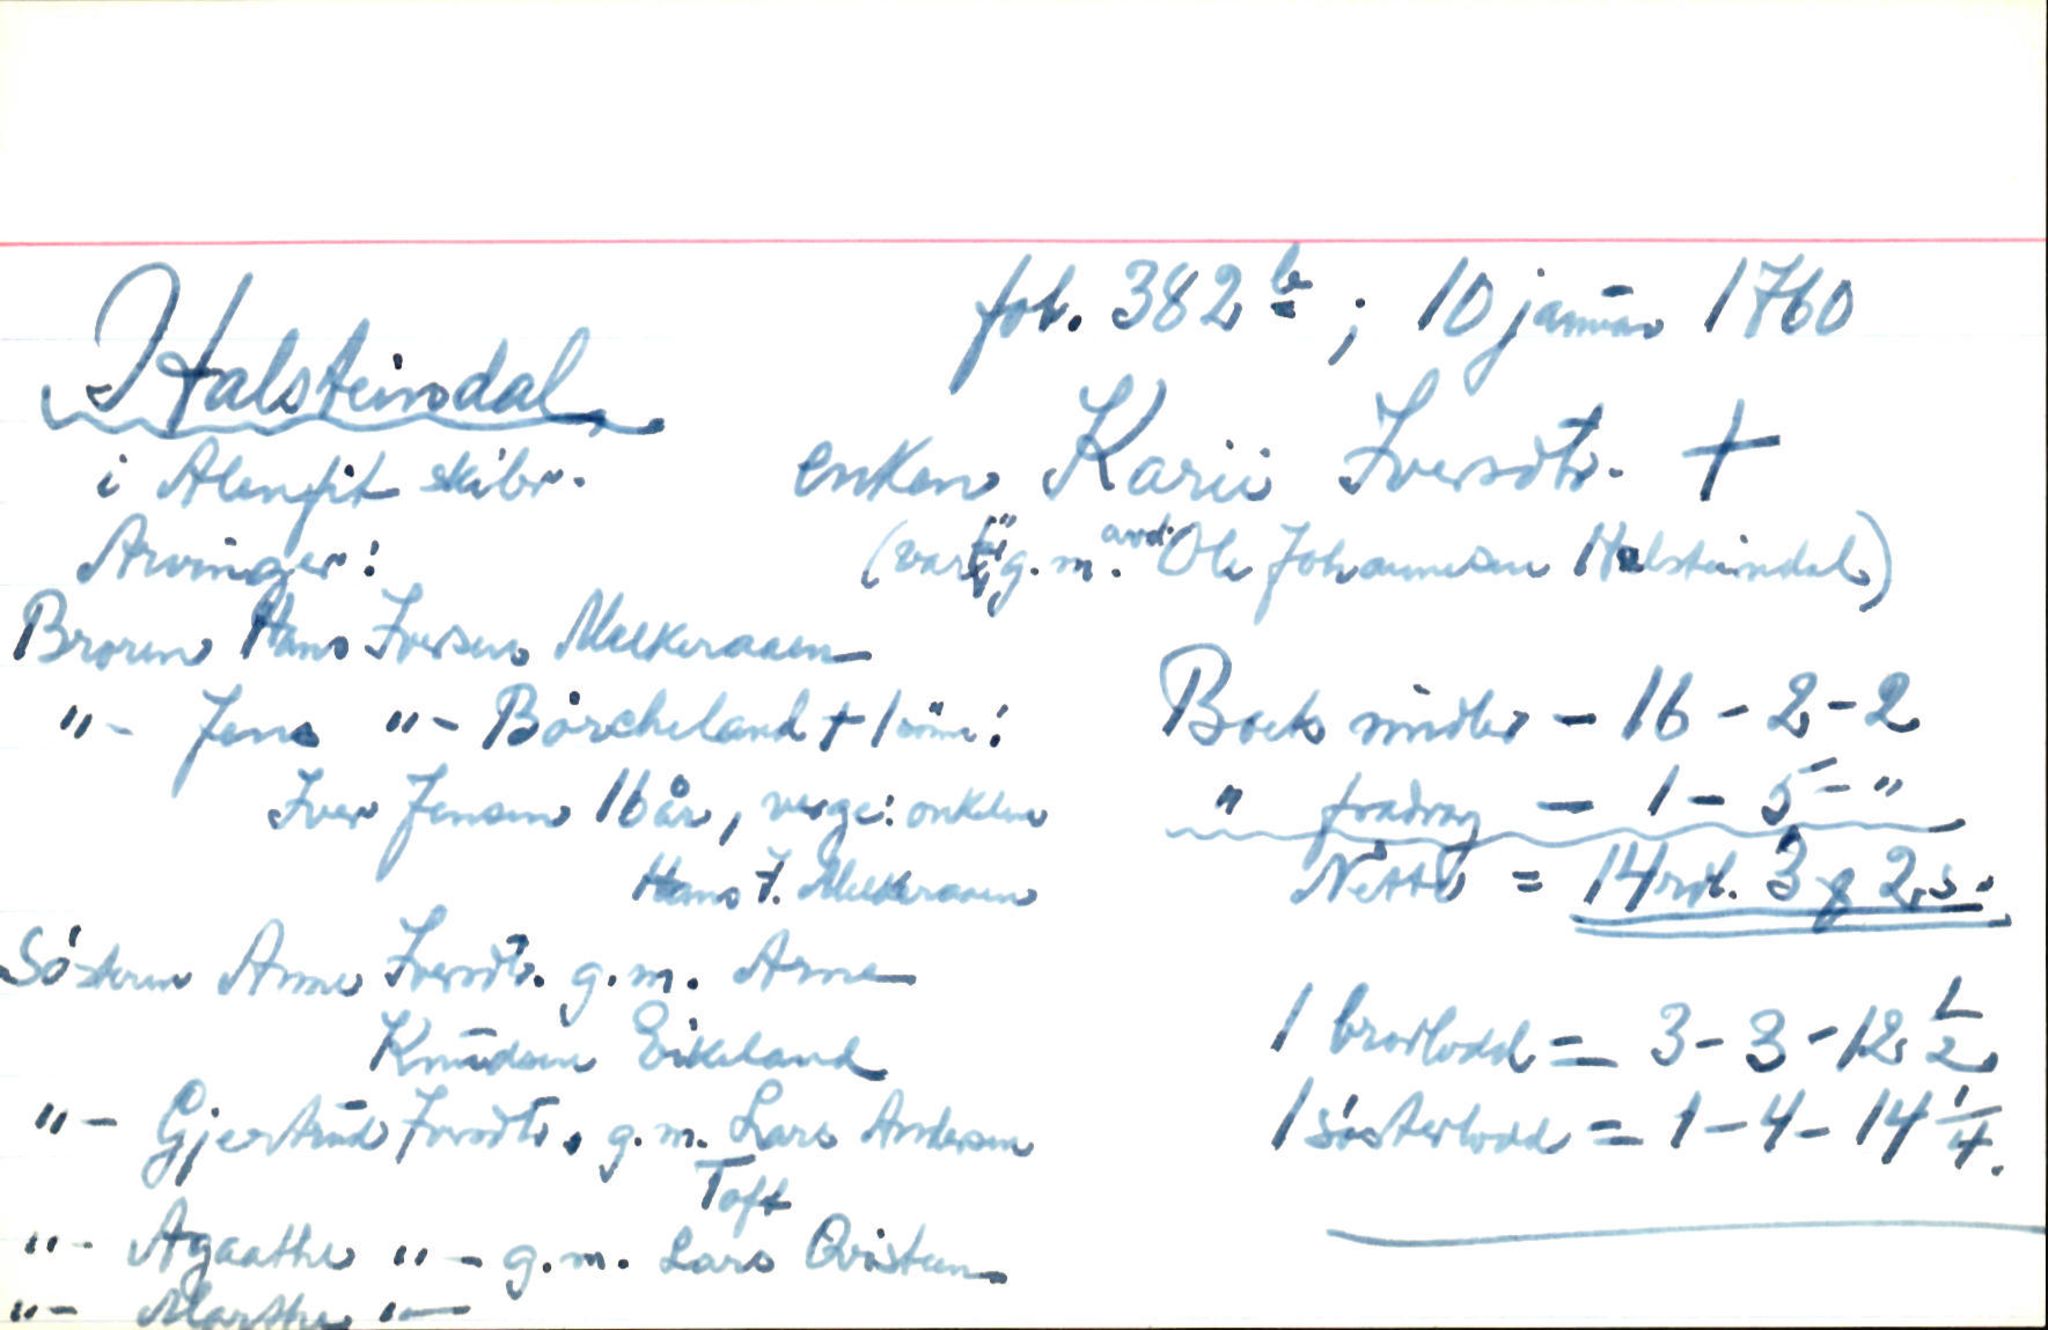 fol. 382 b ; 10 januar 1760
Halsteindal
i Alenfit skibr.
enken Karii Iversdtr. +
(var g.m. avd. Ole Johannesen Halsteindal)
Arvinger:
Broren Hans Iversen Melkeraaen
"- Jens "- Börcheland + 1 sönn:
Iver Jensen 16 år, verge: onkelen
Hans I. Melkeraaen
Söstern Anne Iversdtr. g.m. Arne
Knudsen Eikeland
"- Gjertrud Iversdtr. g.m. Lars Andersen
Toft
"- Agaathe "- g.m. Lars Qvisteen
"- Marthe "-
Boets midler - 16 - 2 - 2
" fradrag - 1 - 5 - "
Netto = 14 rdl. 3 ß 2 s.
1 broderlodd = 3 - 3 - 12 1/2
1 sösterlodd = 1 - 4 - 14 1/4.